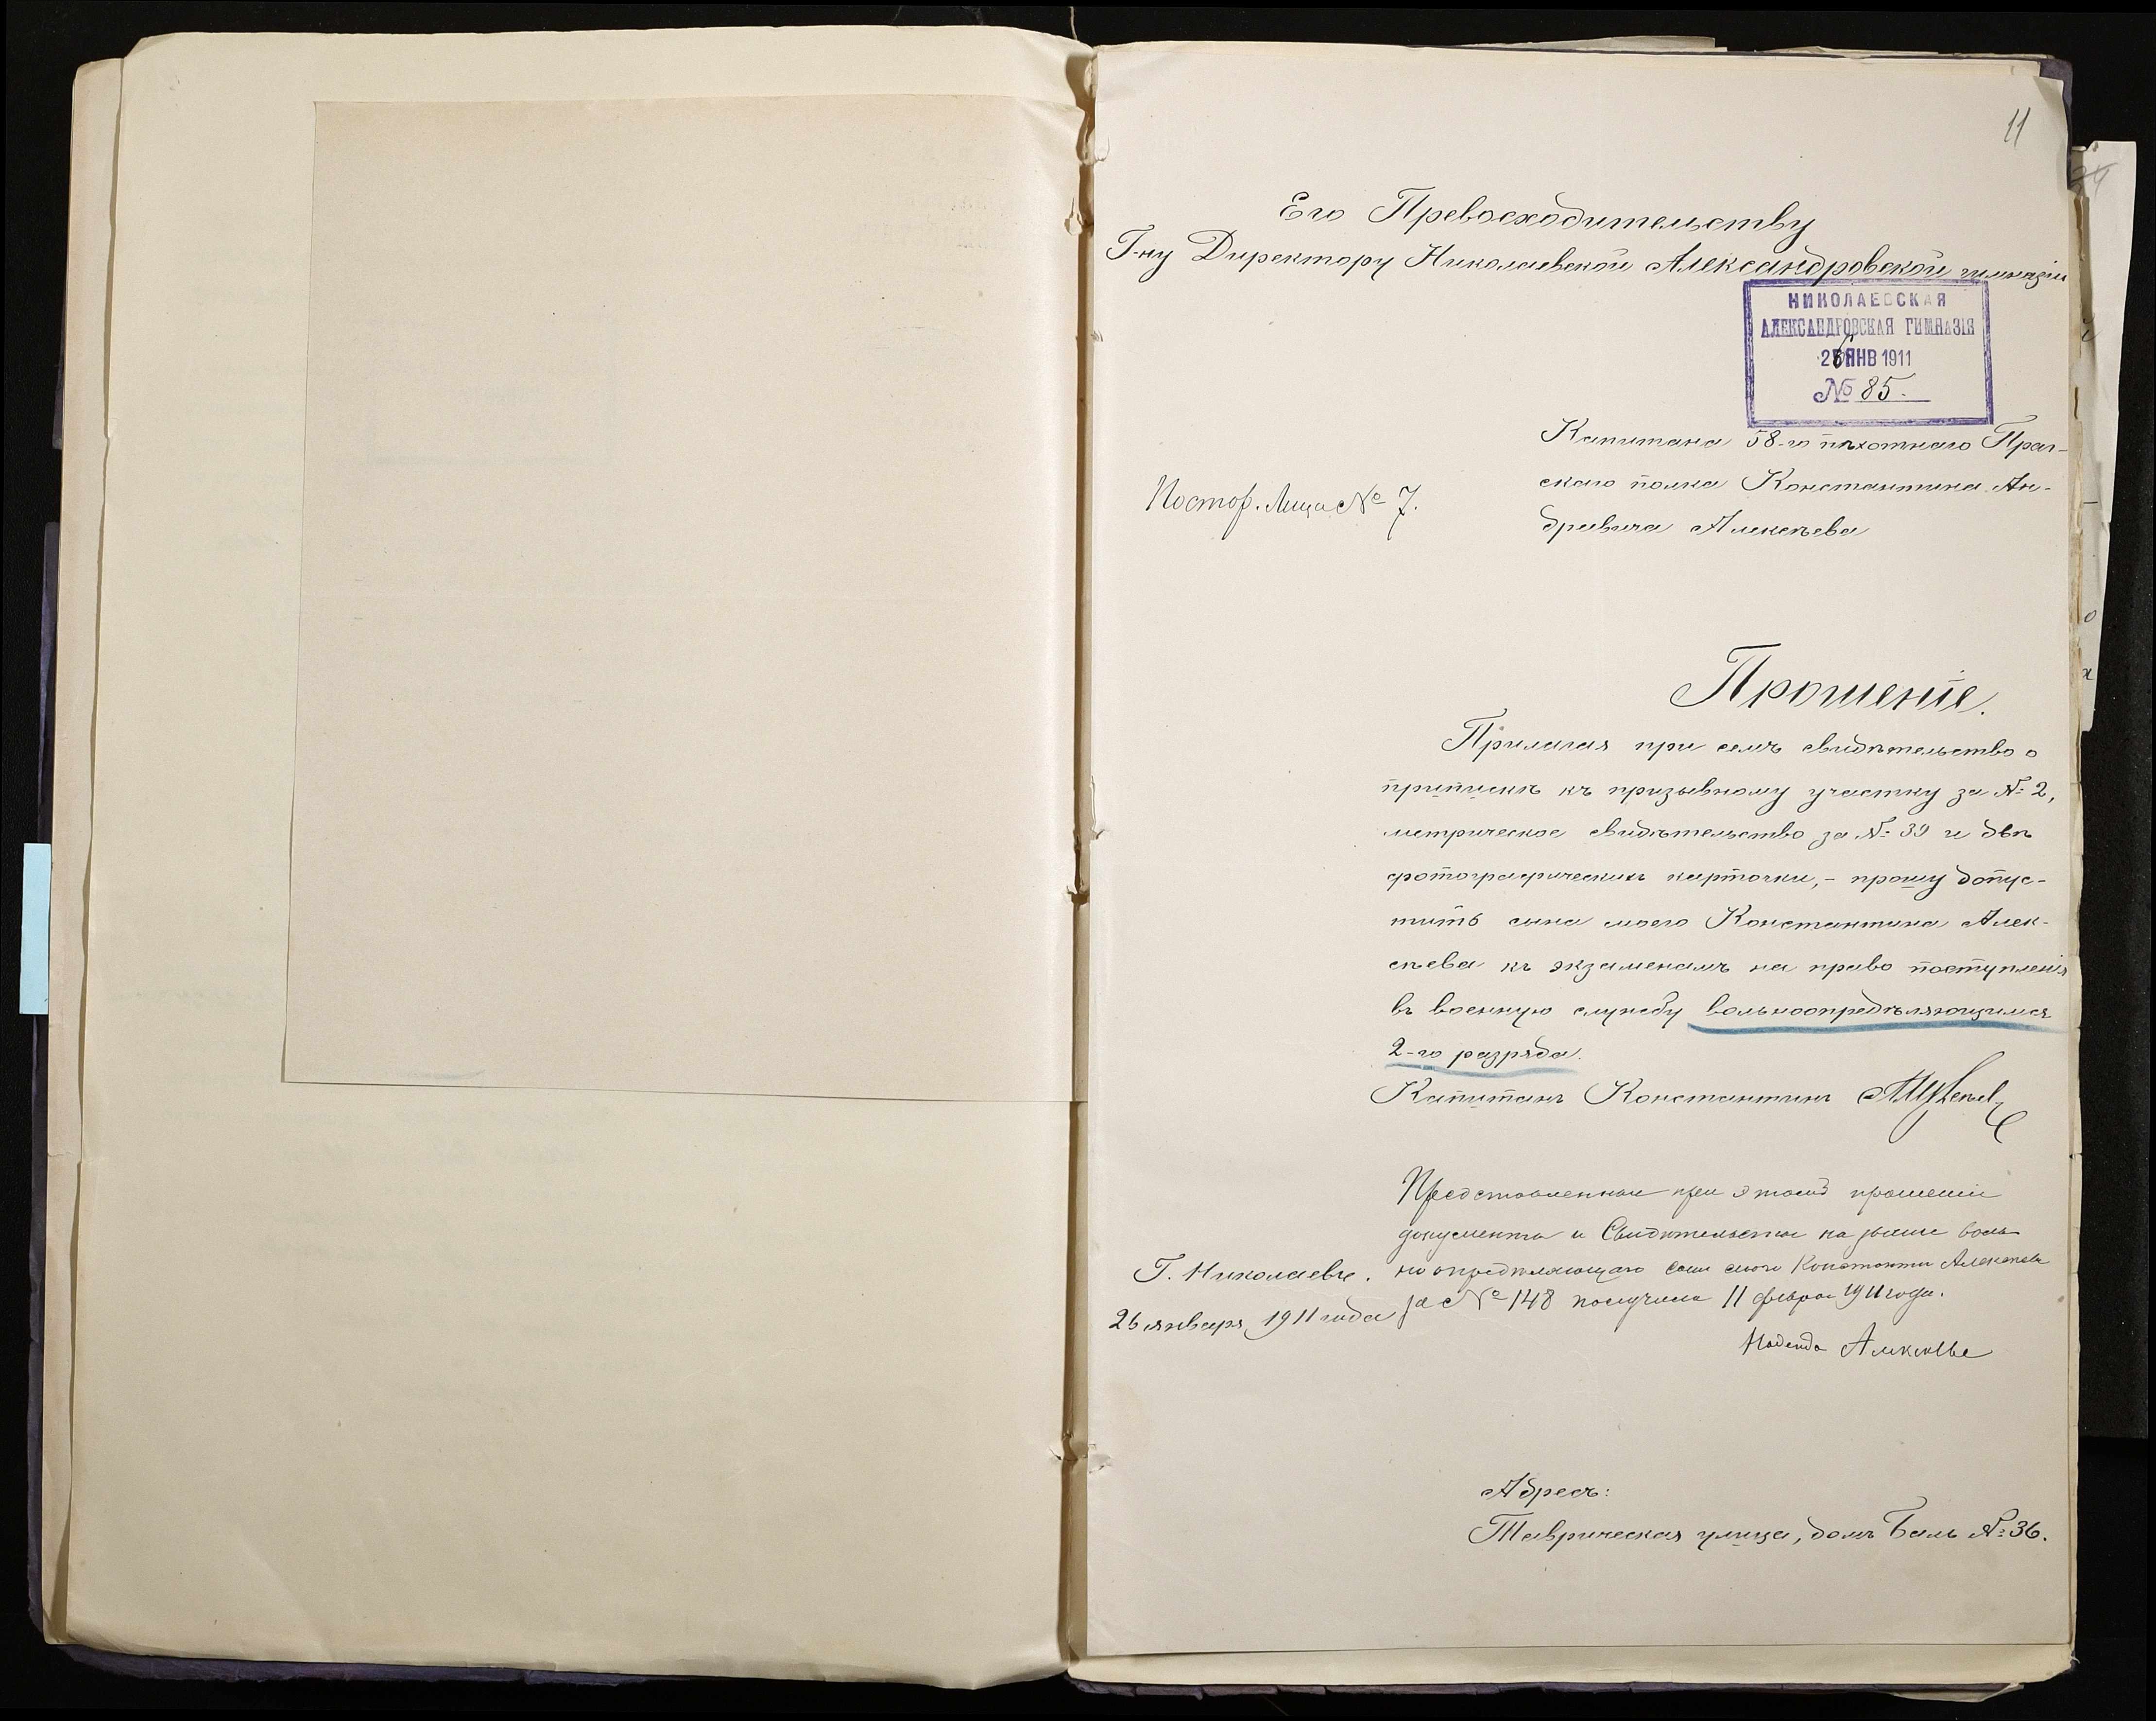 11
Его Превосходительству
Г-ну Директору Николаевской Александровской гимназіи
НИКОЛАЕВСКАЯ
АЛЕКСАНДРОВСКАЯ ГИМНАЗІЯ
26 ЯНВ 1911
№ 85.
Капитана 58-го пѣхотнаго Праг-
скаго полка Константина Ан-
дреевича Алексѣева
Постор. Лица № 7.
Прошеніе.
Прилагая при семъ свидѣтельство о
припискѣ къ призывному участку за № 2,
метрическое свидѣтельство за № 39 и двѣ
фотографическихъ карточки, - прошу допус-
тить сына моего Константина Алек-
сѣева къ экзаменамъ на право поступленія
въ военную службу вольноопредѣляющимся
2-го разряда.
Капитанъ Константинъ Алексѣев
Представленные при этомъ прошеніи
документы и Свидѣтельство на званіе воль-
ноопредѣляющаго сына моего Константи Алексѣева
за № 148 получила 11 февра 1911 года.
Надежда Алексѣева
Г. Николаевъ.
26 января 1911 года
Адресъ:
Таврическая улица, домъ Баль № 36.